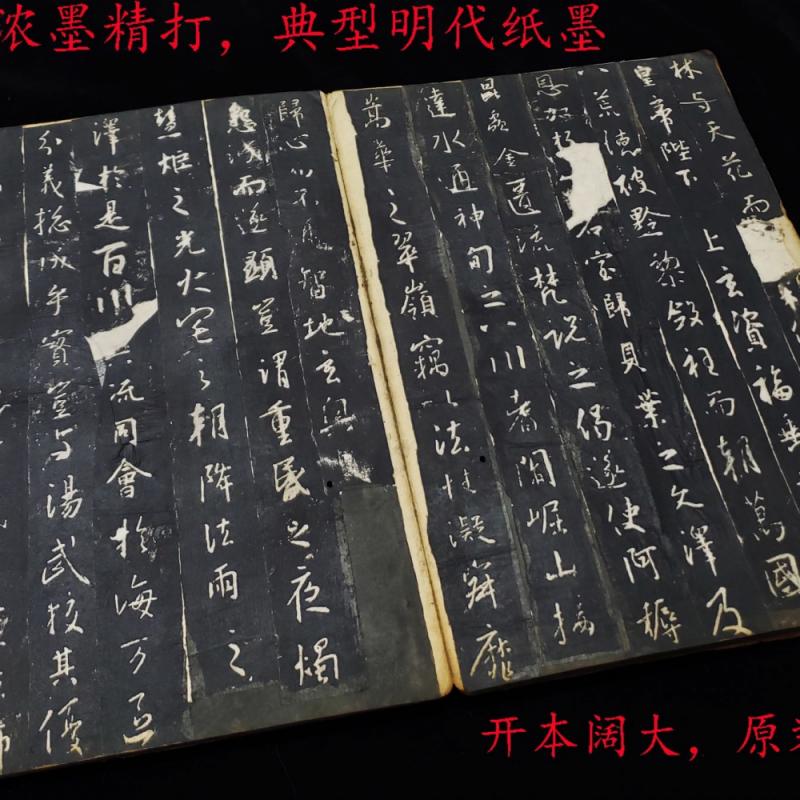 浓墨精打，典型明代纸墨
林與天花而
皇帝陛下 上玄資福垂
八荒德被黔黎斂衽而朝萬國
恩加朽石室歸貝葉之文澤及
昆蟲金匱流梵說之偈遂使阿耨
達水通神甸之八川耆闍崛山接
嵩華之翠嶺竊以法性凝寂靡
歸心而不通智地玄奧
懇誠而遂顯豈謂重昏之夜燭
慧炬之光火宅之朝降法雨之
澤於是百川流同會於海万區
分義捴成乎實豈与湯武校其優
开本阔大，原装